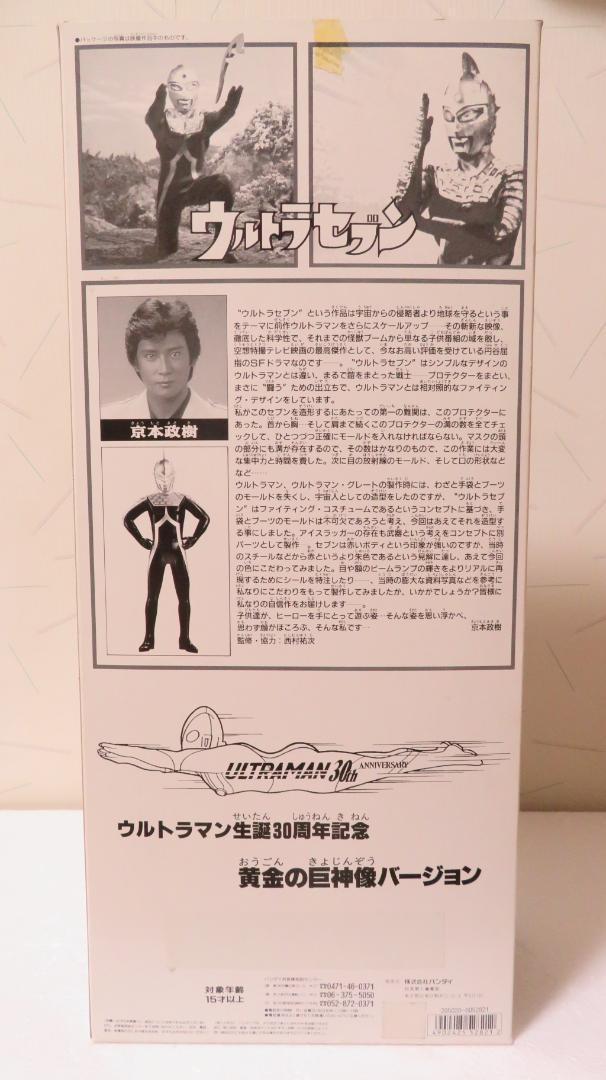 ●パッケージの写真は映像作品中のものです。
ウルトラセブン
京本政樹
“ウルトラセブン”という作品は宇宙からの侵略者より地球を守るという事
をテーマに前作ウルトラマンをさらにスケールアップ──その斬新な映像、
徹底した科学性で、それまでの怪獣ブームから単なる子供番組の域を脱し、
空想特撮テレビ映画の最高傑作として、今なお高い評価を受けている円谷屈
指のSFドラマなのです──。“ウルトラセブン”はシンプルなデザインの
ウルトラマンとは違い、まるで鎧をまとった戦士──プロテクターをまとい、
まさに“闘う”ための出立ちで、ウルトラマンとは相対照的なファイティン
グ・デザインをしています。
私がこのセブンを造形するにあたっての第一の難関は、このプロテクターに
あった。首から胸…そして肩まで続くこのプロテクターの溝の数を全てチェ
ックして、ひとつづつ正確にモールドを入れなければならない。マスクの頭
の部分にも溝が存在するので、その数はかなりのもので、この作業には大変
な集中力と時間を費した。次に目の放射線のモールド、そして口の形状など
など……
ウルトラマン、ウルトラマン・グレートの製作時には、わざと手袋とブーツ
のモールドを失くし、宇宙人としての造型をしたのですが、“ウルトラセブ
ン”はファイティング・コスチュームであるというコンセプトに基づき、手
袋とブーツのモールドは不可欠であろうと考え、今回はあえてそれを造型す
る事にしました。アイスラッガーの存在も武器という考えをコンセプトに別
パーツとして製作。セブンは赤いボディという印象が強いのですが、当時
のスチールなどから赤というより朱色であるという見解に達し、あえて今回
の色にこだわってみました。目や額のビームランプの輝きをよりリアルに再
現するためにシールを特注したり──、当時の膨大な資料写真などを参考に
私なりにこだわりをもって製作してみましたが、いかがでしょうか？皆様に
私なりの自信作をお届けします──
子供達が、ヒーローを手にとって遊ぶ姿…そんな姿を思い浮かべ、
思わず顔がほころぶ、そんな私です… 京本政樹
監修・協力：西村祐次
ULTRAMAN 30th ANNIVERSARY
ウルトラマン生誕30周年記念
せいたん しゅうねん き ねん
黄金の巨神像バージョン
おうごん きょじんぞう
対象年齢
15才以上
バンダイお客様相談センター
☎0471-46-0371
☎06-375-5050
☎052-872-0371
発売元 株式会社バンダイ
205020-0052821
4902425528212